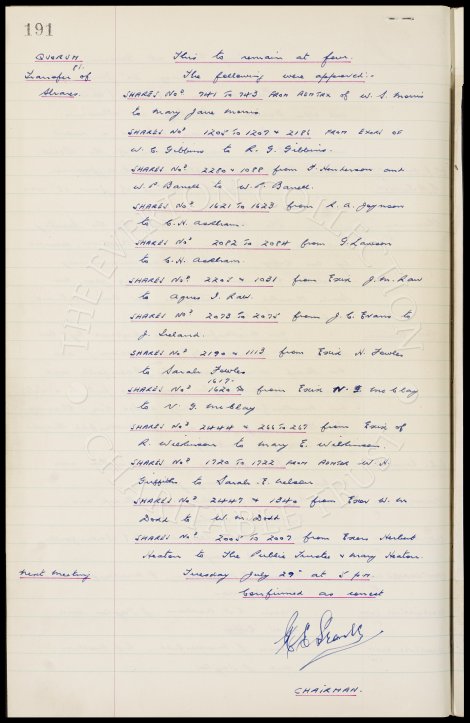 191
QUORUM This to remain at four.
Transfer of The following were approved:-
Shares. SHARES Nos 741 TO 743 FROM ADMTRX of W. S. Morris
to Mary Jane Morris.
SHARES Nos 1205 TO 1207 & 2186 FROM EXORS OF
W. C. Gibbins to R. G. Gibbins.
SHARES Nos 2280 & 1088 from F. Henderson and
W. P. Barrell to W. P. Barrell.
SHARES Nos 1621 TO 1623 from L. A. Joynson
to C. H. Askham.
SHARES Nos 2082 TO 2084 from G. Lawson
to C. H. Askham.
SHARES Nos 2205 & 1031 from Exix J. M. Law
to Agnes I. Law.
SHARES Nos 2073 TO 2075 from J. C. Evans to
J. Ireland.
SHARES Nos 2190 & 1113 from Exix H. Fowles
to Sarah Fowles
1617.
SHARES Nos 1620 from Exix N. McClay
to N. G. McClay
SHARES Nos 2444 & 266 TO 267 from Exix of
R. Wilkinson to Mary E. Wilkinson.
SHARES Nos 1720 TO 1722 FROM ADMTR W. H.
Griffith to Sarah. E.
SHARES Nos 2447 & 1340 from Exor W. W.
Dodd to W. Dodd
SHARES Nos 2005 TO 2007 from Exors Herbert
Heaton to The Public Trustee & Mary Heaton.
Next meeting Tuesday July 29th at 5 pm.
Confirmed as correct
CHAIRMAN.
THE EVERTON COLLECTION
CHARITABLE TRUST